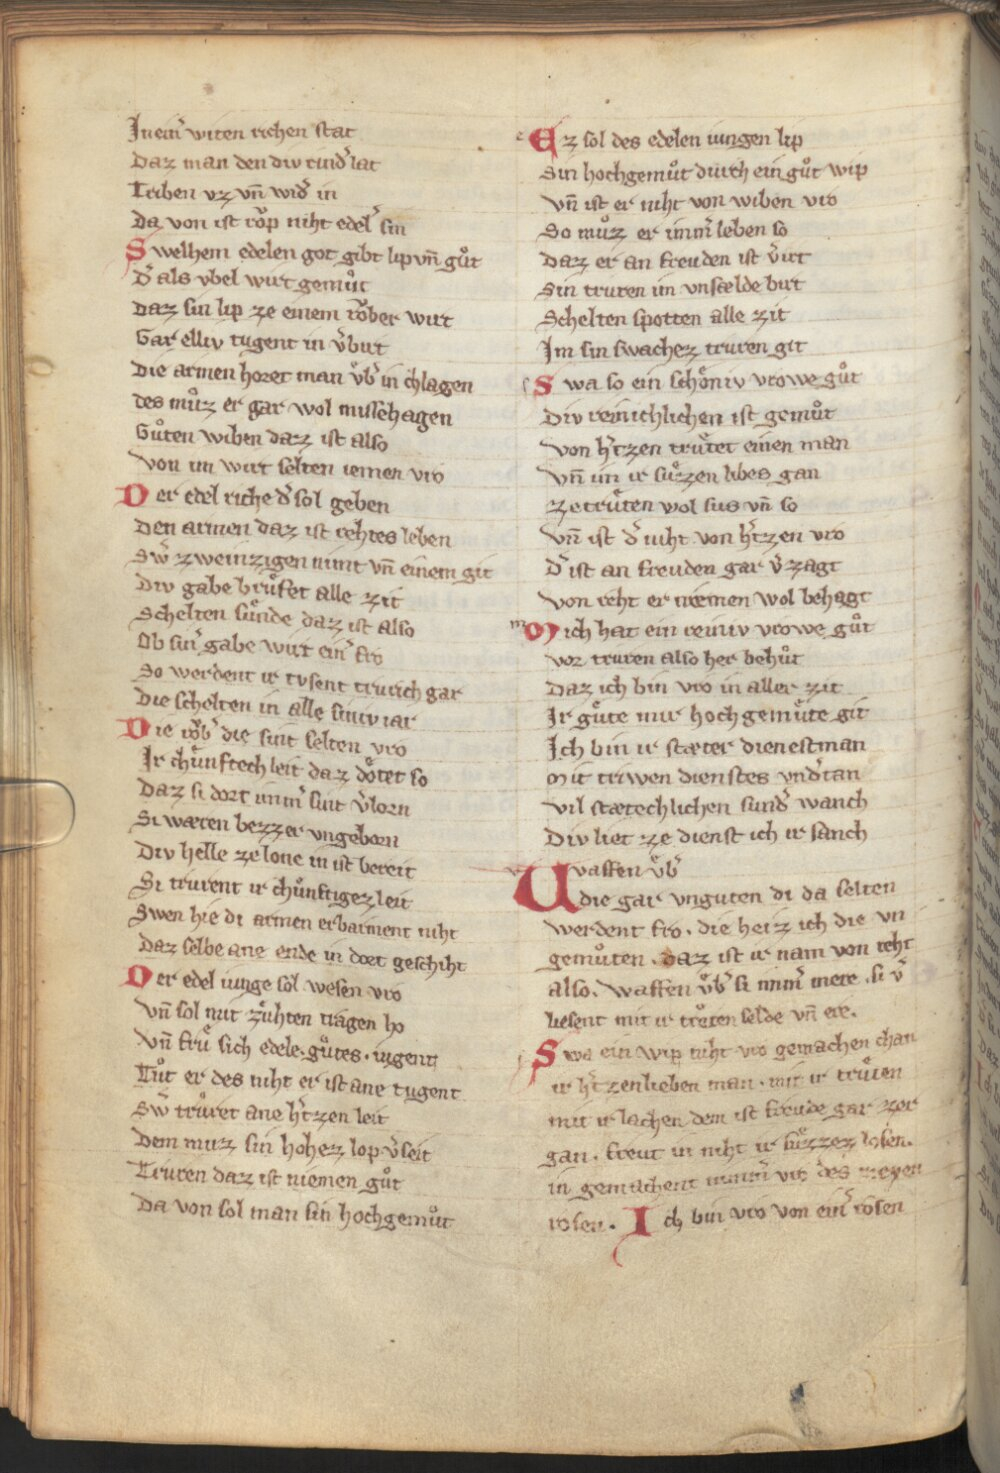 In ein̄ witen richen stat
Daz man den div rind̄ lat
Triben vz vn̄ wid̄ in
Da von ist roͮp niht edel̄ sin
Swelhem edelen got gibt lip vn̄ guͦt
D̄ als vbel wirt gemuͦt
Daz sin lip ze einem roͮber wirt
Gar elliv tugent in v̄birt
Die armen horet man vͤb̄ in chlagen
des muͦz er gar wol missehagen
Guͦten wiben daz ist also
Von im wirt selten iemen vro
Der edel riche d̄ sol geben
Den armen daz ist rehtes leben
Sw̄ zweinzigen nimt vn̄ einem git
Div gabe bruͤfet alle zit
Schelten suͤnde daz ist also
Ob sin̄ gabe wirt ein̄ fro
So werdent ir tvsent trurich gar
Die schelten in alle siniv iar
Die roͮb̄ die sint selten vro
Ir chuͤnftech leit daz doͤtet so
Daz si dort imm̄ sint v̄lorn
Si wæren bezzer vngeborn
Div helle ze lone in ist bereit
Si trurent ir chuͤnftigez leit
Swen hie di armen erbarment niht
Daz selbe ane ende in dort geschiht
Der edel iunge sol wesen vro
Vn̄ sol mit zuͤhten tragen ho
Vn̄ fruͤ sich edele. guͦtes. iugent
Tuͦt er des niht er ist ane tugent
Sw̄ truͦret ane h̄tzen leit
Dem muz sin hohez lop v̄seit
Truren daz ist niemen guͦt
Da von sol man sin hochgemuͦt
Ez sol des edelen iungen lip
Sin hochgemuͦt durch ein guͦt wip
Vn̄ ist er niht von wiben vro
So muͦz er imm̄ leben so
Daz er an freuden ist v̄irt
Sin truren im vnsælde birt
Schelten spotten alle zit
Im sin swachez truren git
Swa so ein schoͤniv vrowe guͦt
Div reinichlichen ist gemuͦt
Von h̄tzen truͤtet einen man
Vn̄ im ir suͤzzen libes gan
Ze truͤten wol sus vn̄ so
Vn̄ ist d̄ niht von h̄tzen vro
D̄ ist an freuden gar v̄zagt
Von reht er niemen wol behagt
Mich hat ein reiniv vrowe guͦt
Vor truren also her behuͦt
Daz ich bin vro in aller zit
Ir guͤte mir hochgemuͤte git
Ich bin ir stæter dienestman
Mit triwen dienstes vnd̄tan
Vil stætechlichen sund̄ wanch
Div liet ze dienst ich ir sanch
Uvaffen vͤb̄
die gar vnguten di da selten
werdent fro. die heiz ich die vn
gemuͦten. daz ist ir nam von reht
also. waffen vͤb̄ si imm̄ mere. si v̄
liesent mit ir truͦren selde vn̄ ere.
Swa ein wip niht vro gemachen chan
ir h̄tzenlieben man. mit ir truͤten
mit ir lachen dem ist freude gar zer
gan. freut in niht ir suͤzzez losen.
in gemachent nimm̄ vro des meyen
rosen. Ich bin vro von ein̄ rosen